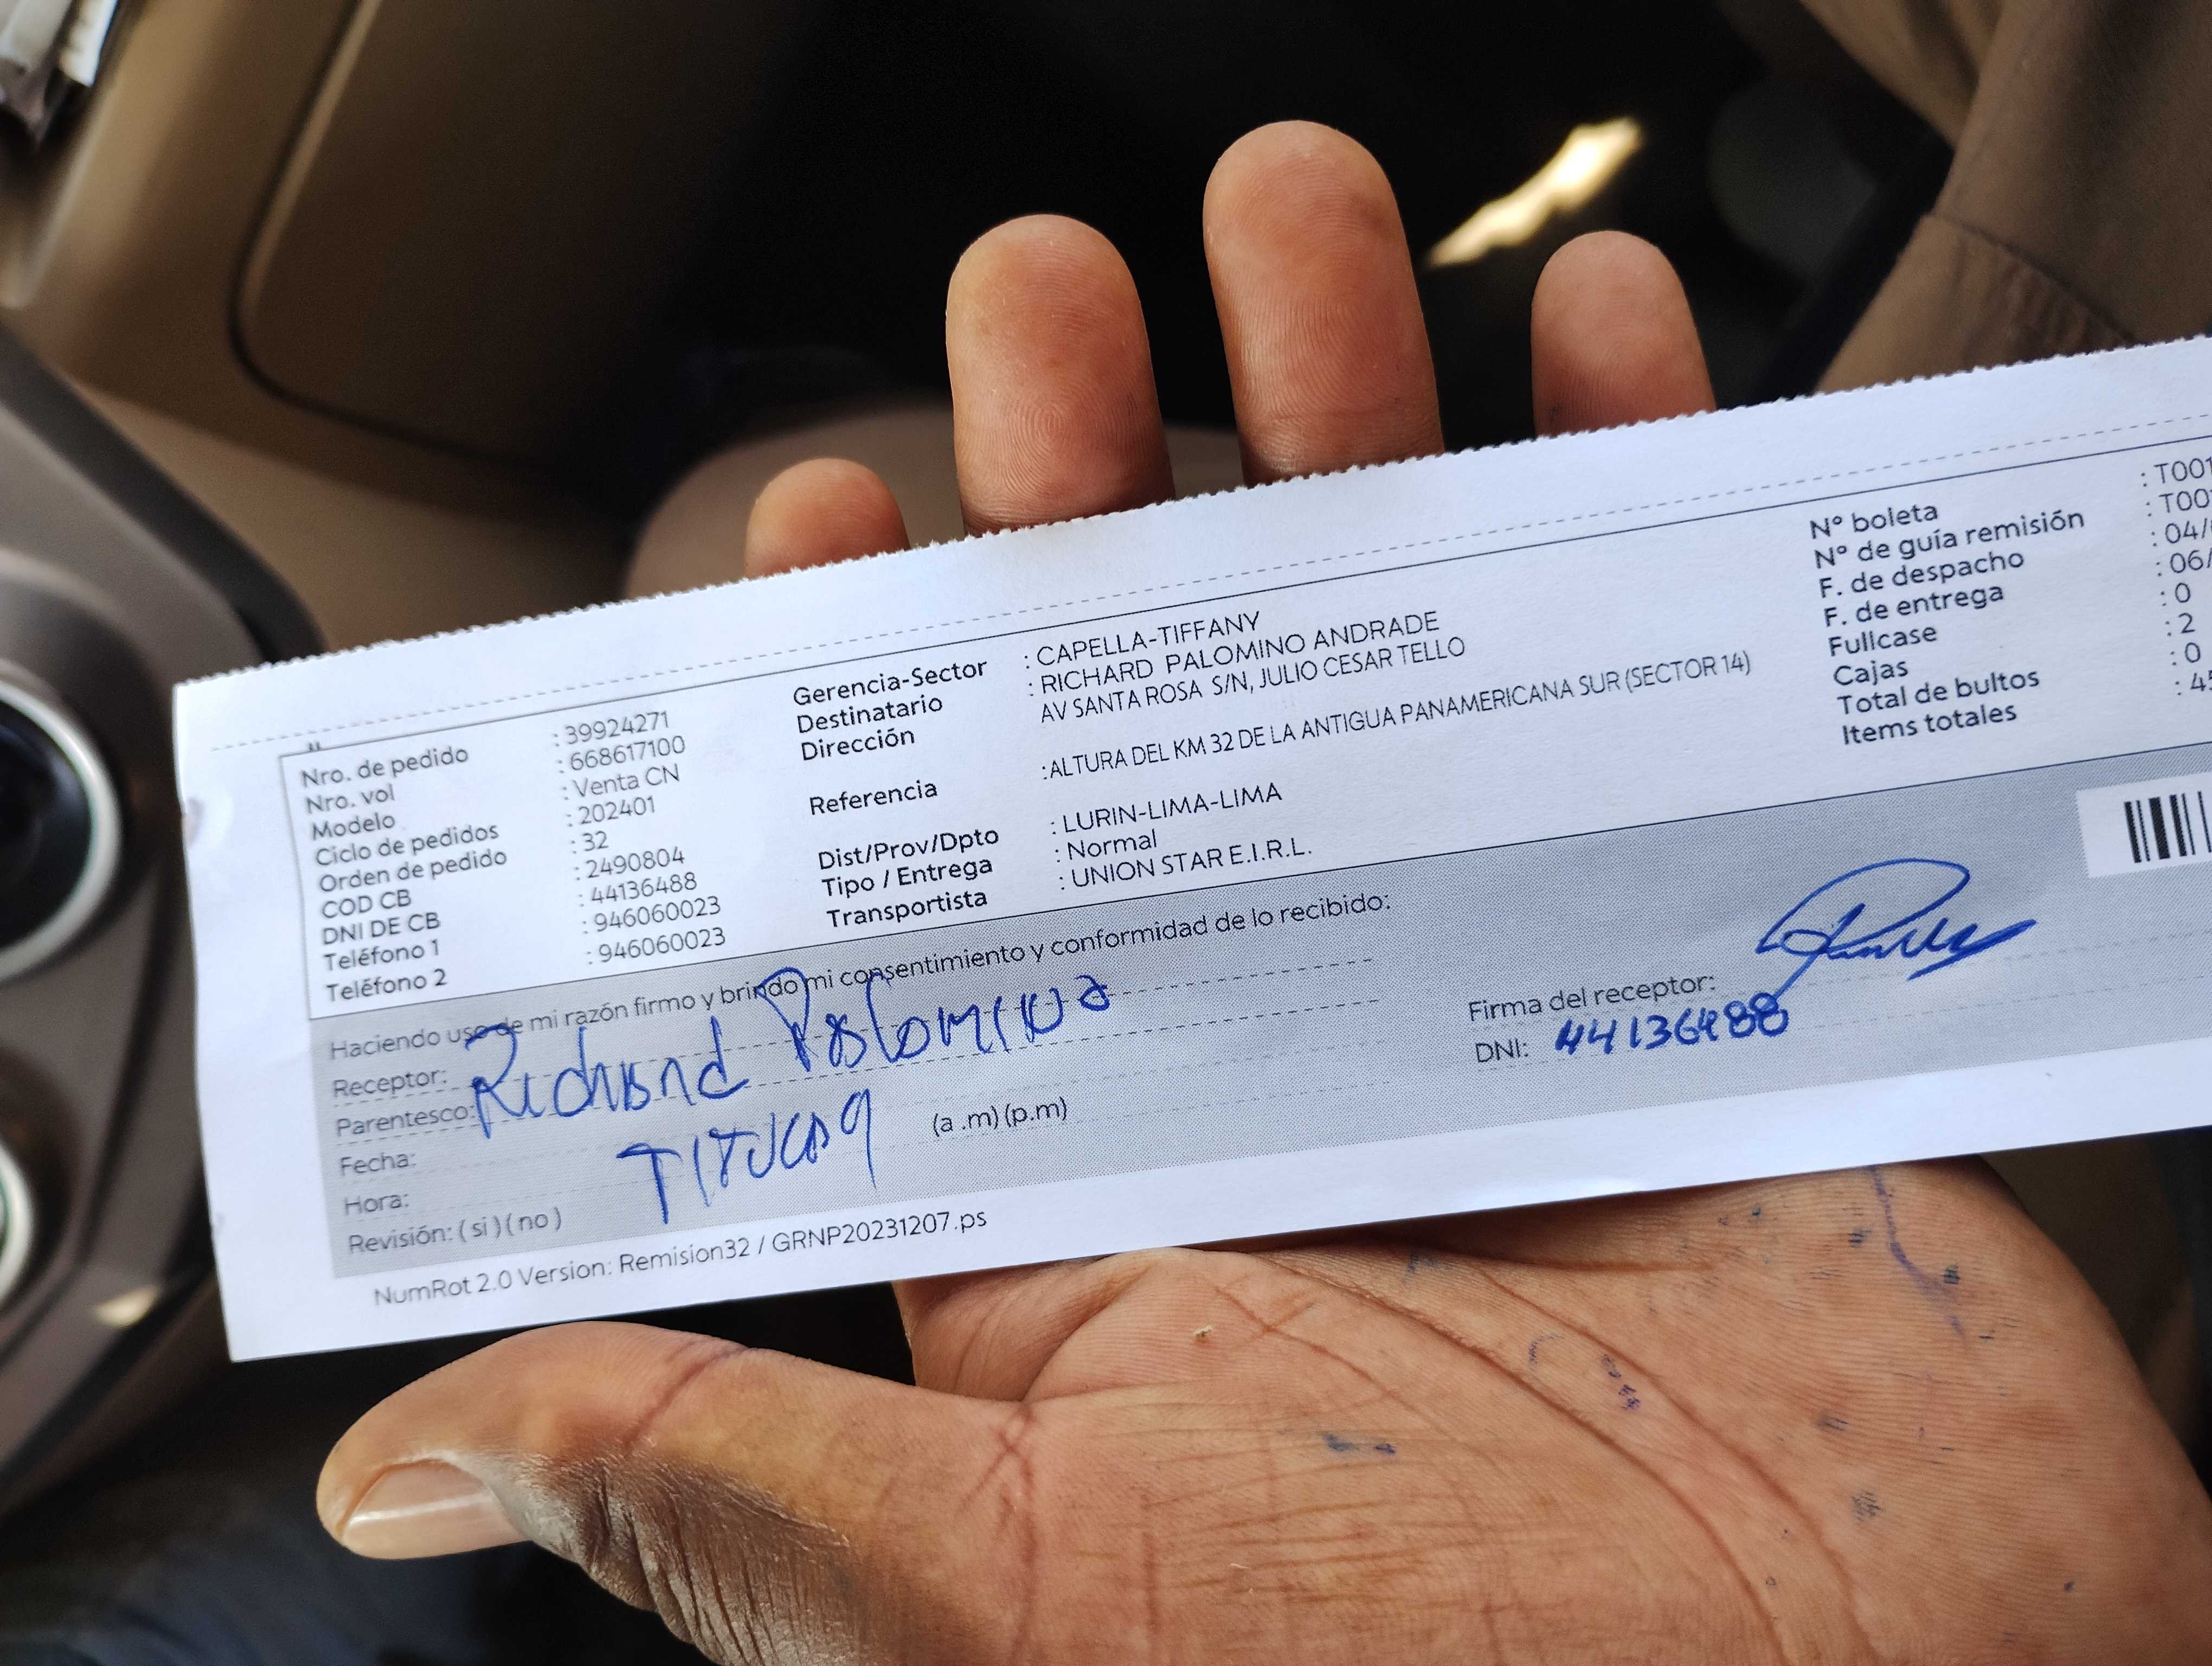 Nro. de pedido : 39924271
Nro. vol : 668617100
Modelo : Venta CN
Ciclo de pedidos : 202401
Orden de pedido : 32
COD CB : 2490804
DNI DE CB : 44136488
Teléfono 1 : 946060023
Teléfono 2 : 946060023
Gerencia-Sector : CAPELLA-TIFFANY
Destinatario : RICHARD PALOMINO ANDRADE
Dirección AV SANTA ROSA S/N, JULIO CESAR TELLO
Referencia :ALTURA DEL KM 32 DE LA ANTIGUA PANAMERICANA SUR (SECTOR 14)
Dist/Prov/Dpto : LURIN-LIMA-LIMA
Tipo / Entrega : Normal
Transportista : UNION STAR E.I.R.L.
N° boleta : T001
N° de guía remisión : T00
F. de despacho : 04/
F. de entrega : 06/
Fullcase : 0
Cajas : 2
Total de bultos : 0
Items totales : 45
Haciendo uso de mi razón firmo y brindo mi consentimiento y conformidad de lo recibido:
Receptor: Richard Palomino
Parentesco:
Fecha:
Hora: (a .m) (p.m)
Revisión: ( si ) ( no )
Firma del receptor:
DNI: 44136488
NumRot 2.0 Version: Remision32 / GRNP20231207.ps